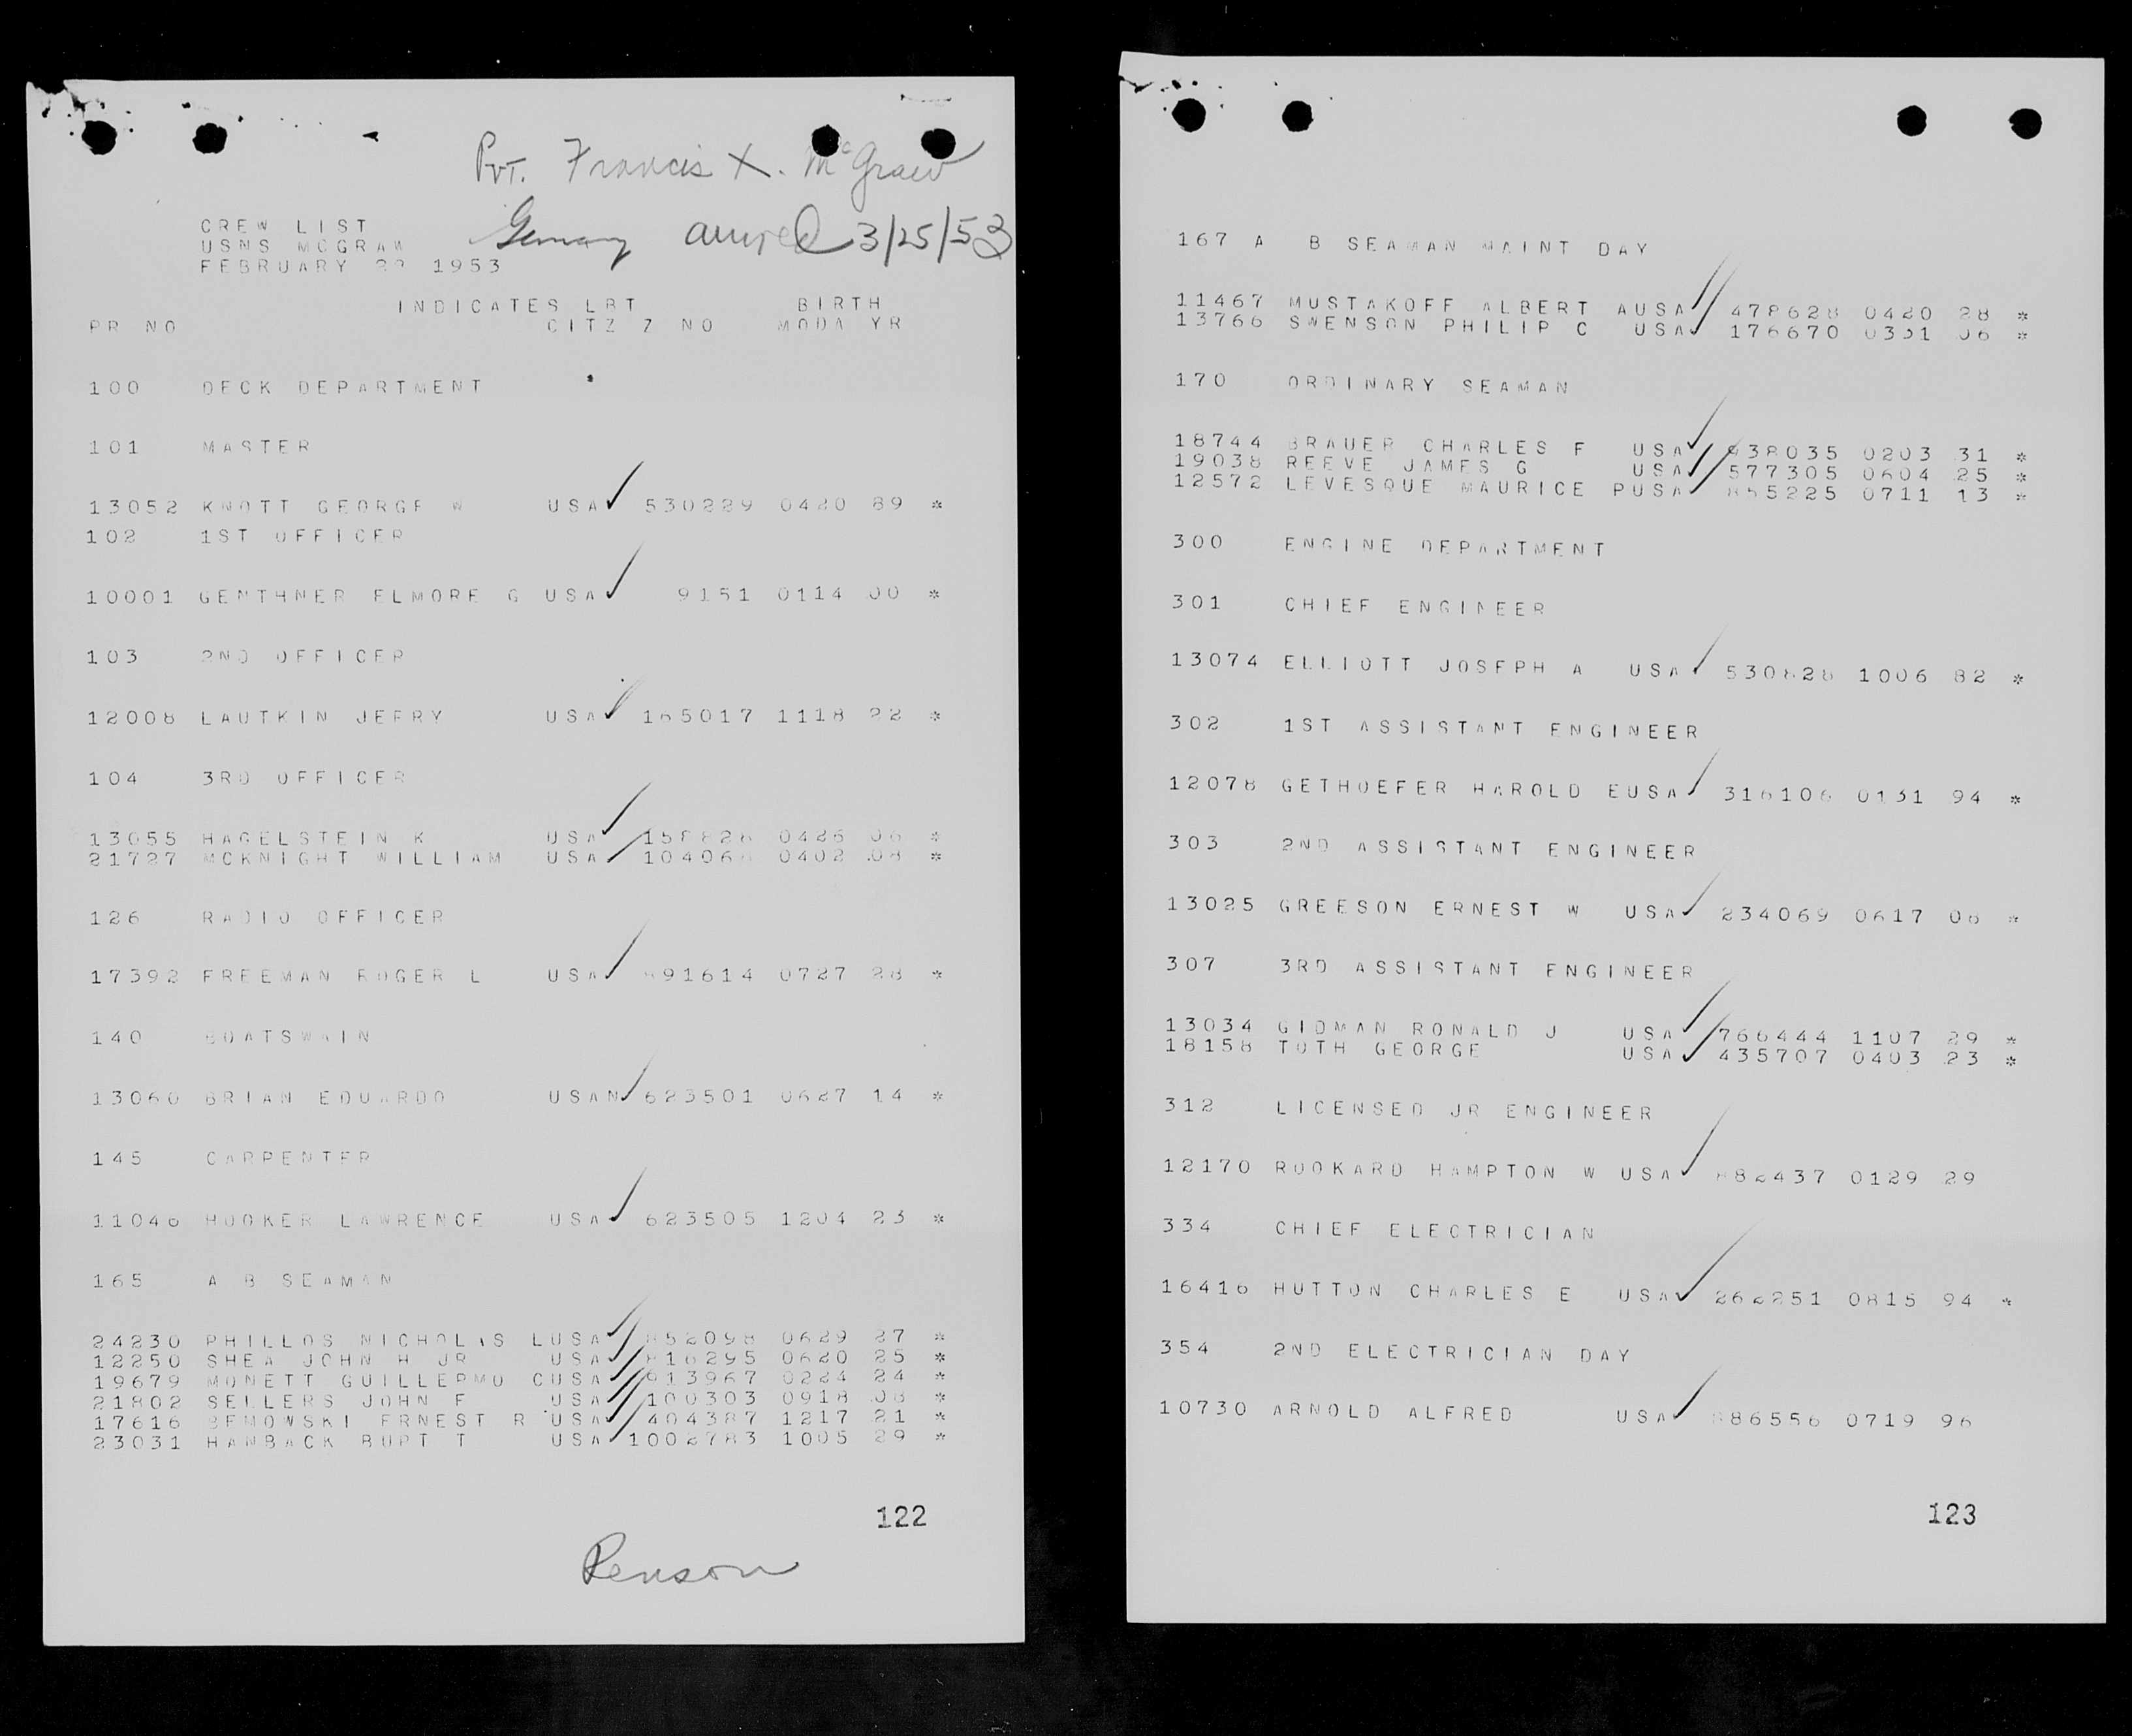 Pvt. Francis X. McGraw
CREW LIST
USNS MCGRAW
Germany arrived 3/25/53
FEBRUARY 1953
INDICATES LBT BIRTH
PR NO CITZ Z NO MODA YR
100 DECK DEPARTMENT
101 MASTER
13052 KNOTT GEORGE W USA 530229 0420 89 *
102 1ST OFFICER
10001 GENTHNER ELMORE G USA 9151 0114 00 *
103 2ND OFFICER
12008 LAUTKIN JERRY USA 165017 1118 22 *
104 3RD OFFICER
13055 HAGELSTEIN K USA 0426 06 *
21727 MCKNIGHT WILLIAM USA 0402 08 *
126 RADIO OFFICER
17392 FREEMAN ROGER L USA 0727 28 *
140 BOATSWAIN
13060 BRIAN EDUARDO USAN 623501 0627 14 *
145 CARPENTER
11046 HOOKER LAWRENCE USA 623505 1204 23 *
165 A B SEAMAN
24230 PHILLOS NICHOLAS L USA 852098 0629 27 *
12250 SHEA JOHN H JR USA 816295 0620 25 *
19679 MONETT GUILLERMO C USA 913967 0224 24 *
21802 SELLERS JOHN F USA 100303 0918 08 *
17616 ERNEST R USA 404387 1217 21 *
23031 HANBACK BURT T USA 1002783 1005 29 *
122
167 A B SEAMAN MAINT DAY
11467 MUSTAKOFF ALBERT A USA 478628 0420 28 *
13766 SWENSON PHILIP C USA 176670 0331 06 *
170 ORDINARY SEAMAN
18744 BRAUER CHARLES F USA 0203 31 *
19038 REEVE JAMES G USA 577305 0604 25 *
12572 LEVESQUE MAURICE P USA 855225 0711 13 *
300 ENGINE DEPARTMENT
301 CHIEF ENGINEER
13074 ELLIOTT JOSEPH A USA 530828 1006 82 *
302 1ST ASSISTANT ENGINEER
12078 GETHOEFER HAROLD E USA 316106 0131 94 *
303 2ND ASSISTANT ENGINEER
13025 GREESON ERNEST W USA 234069 0617 08 *
307 3RD ASSISTANT ENGINEER
13034 GIDMAN RONALD J USA 766444 1107 29 *
18158 TOTH GEORGE USA 435707 0403 23 *
312 LICENSED JR ENGINEER
12170 ROOKARD HAMPTON W USA 882437 0129 29
334 CHIEF ELECTRICIAN
16416 HUTTON CHARLES E USA 262251 0815 94 *
354 2ND ELECTRICIAN DAY
10730 ARNOLD ALFRED USA 886556 0719 96
123